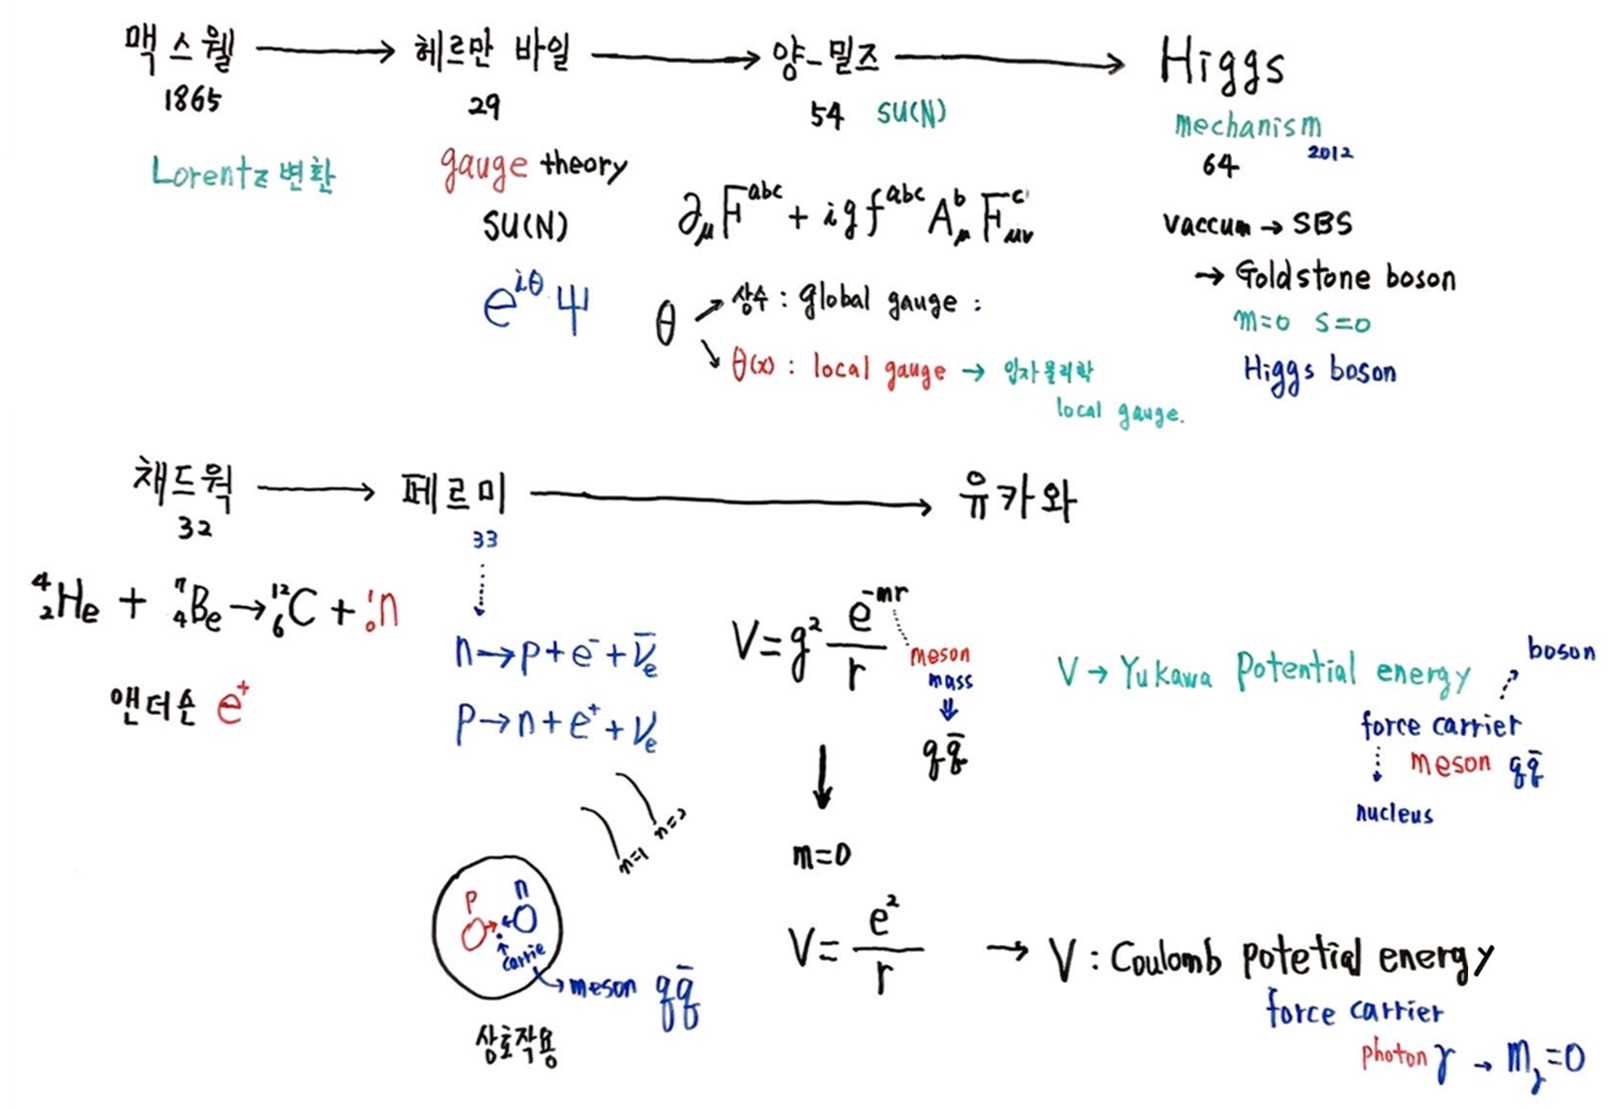 맥스웰 → 헤르만 바일 → 양-밀즈 → Higgs
1865 29 54 SU(N) mechanism
64 2012
Lorentz 변환
gauge theory
SU(N)
e^{iθ} ψ
∂_μ F^{abc} + i g f^{abc} A^b_μ F^c_{μν}
θ ↗ 상수 : global gauge :
↘ θ(x) : local gauge → 입자물리학
local gauge.
vaccum → SBS
→ Goldstone boson
m=0 s=0
Higgs boson
채드윅 → 페르미 → 유카와
32 33
⁴₂He + ⁷₄Be → ¹²₆C + ¹₀n
앤더슨 e⁺
n → p + e⁻ + ν̄_e
p → n + e⁺ + ν_e
n=1 n=2
p n
carrie
meson qq̄
상호작용
V = g² e^{-mr} / r
meson
mass
⇓
qq̄
↓
m=0
V = e² / r
V → Yukawa Potential energy
boson
force carrier
meson qq̄
nucleus
→ V : Coulomb potetial energy
force carrier
photon γ → m_γ = 0